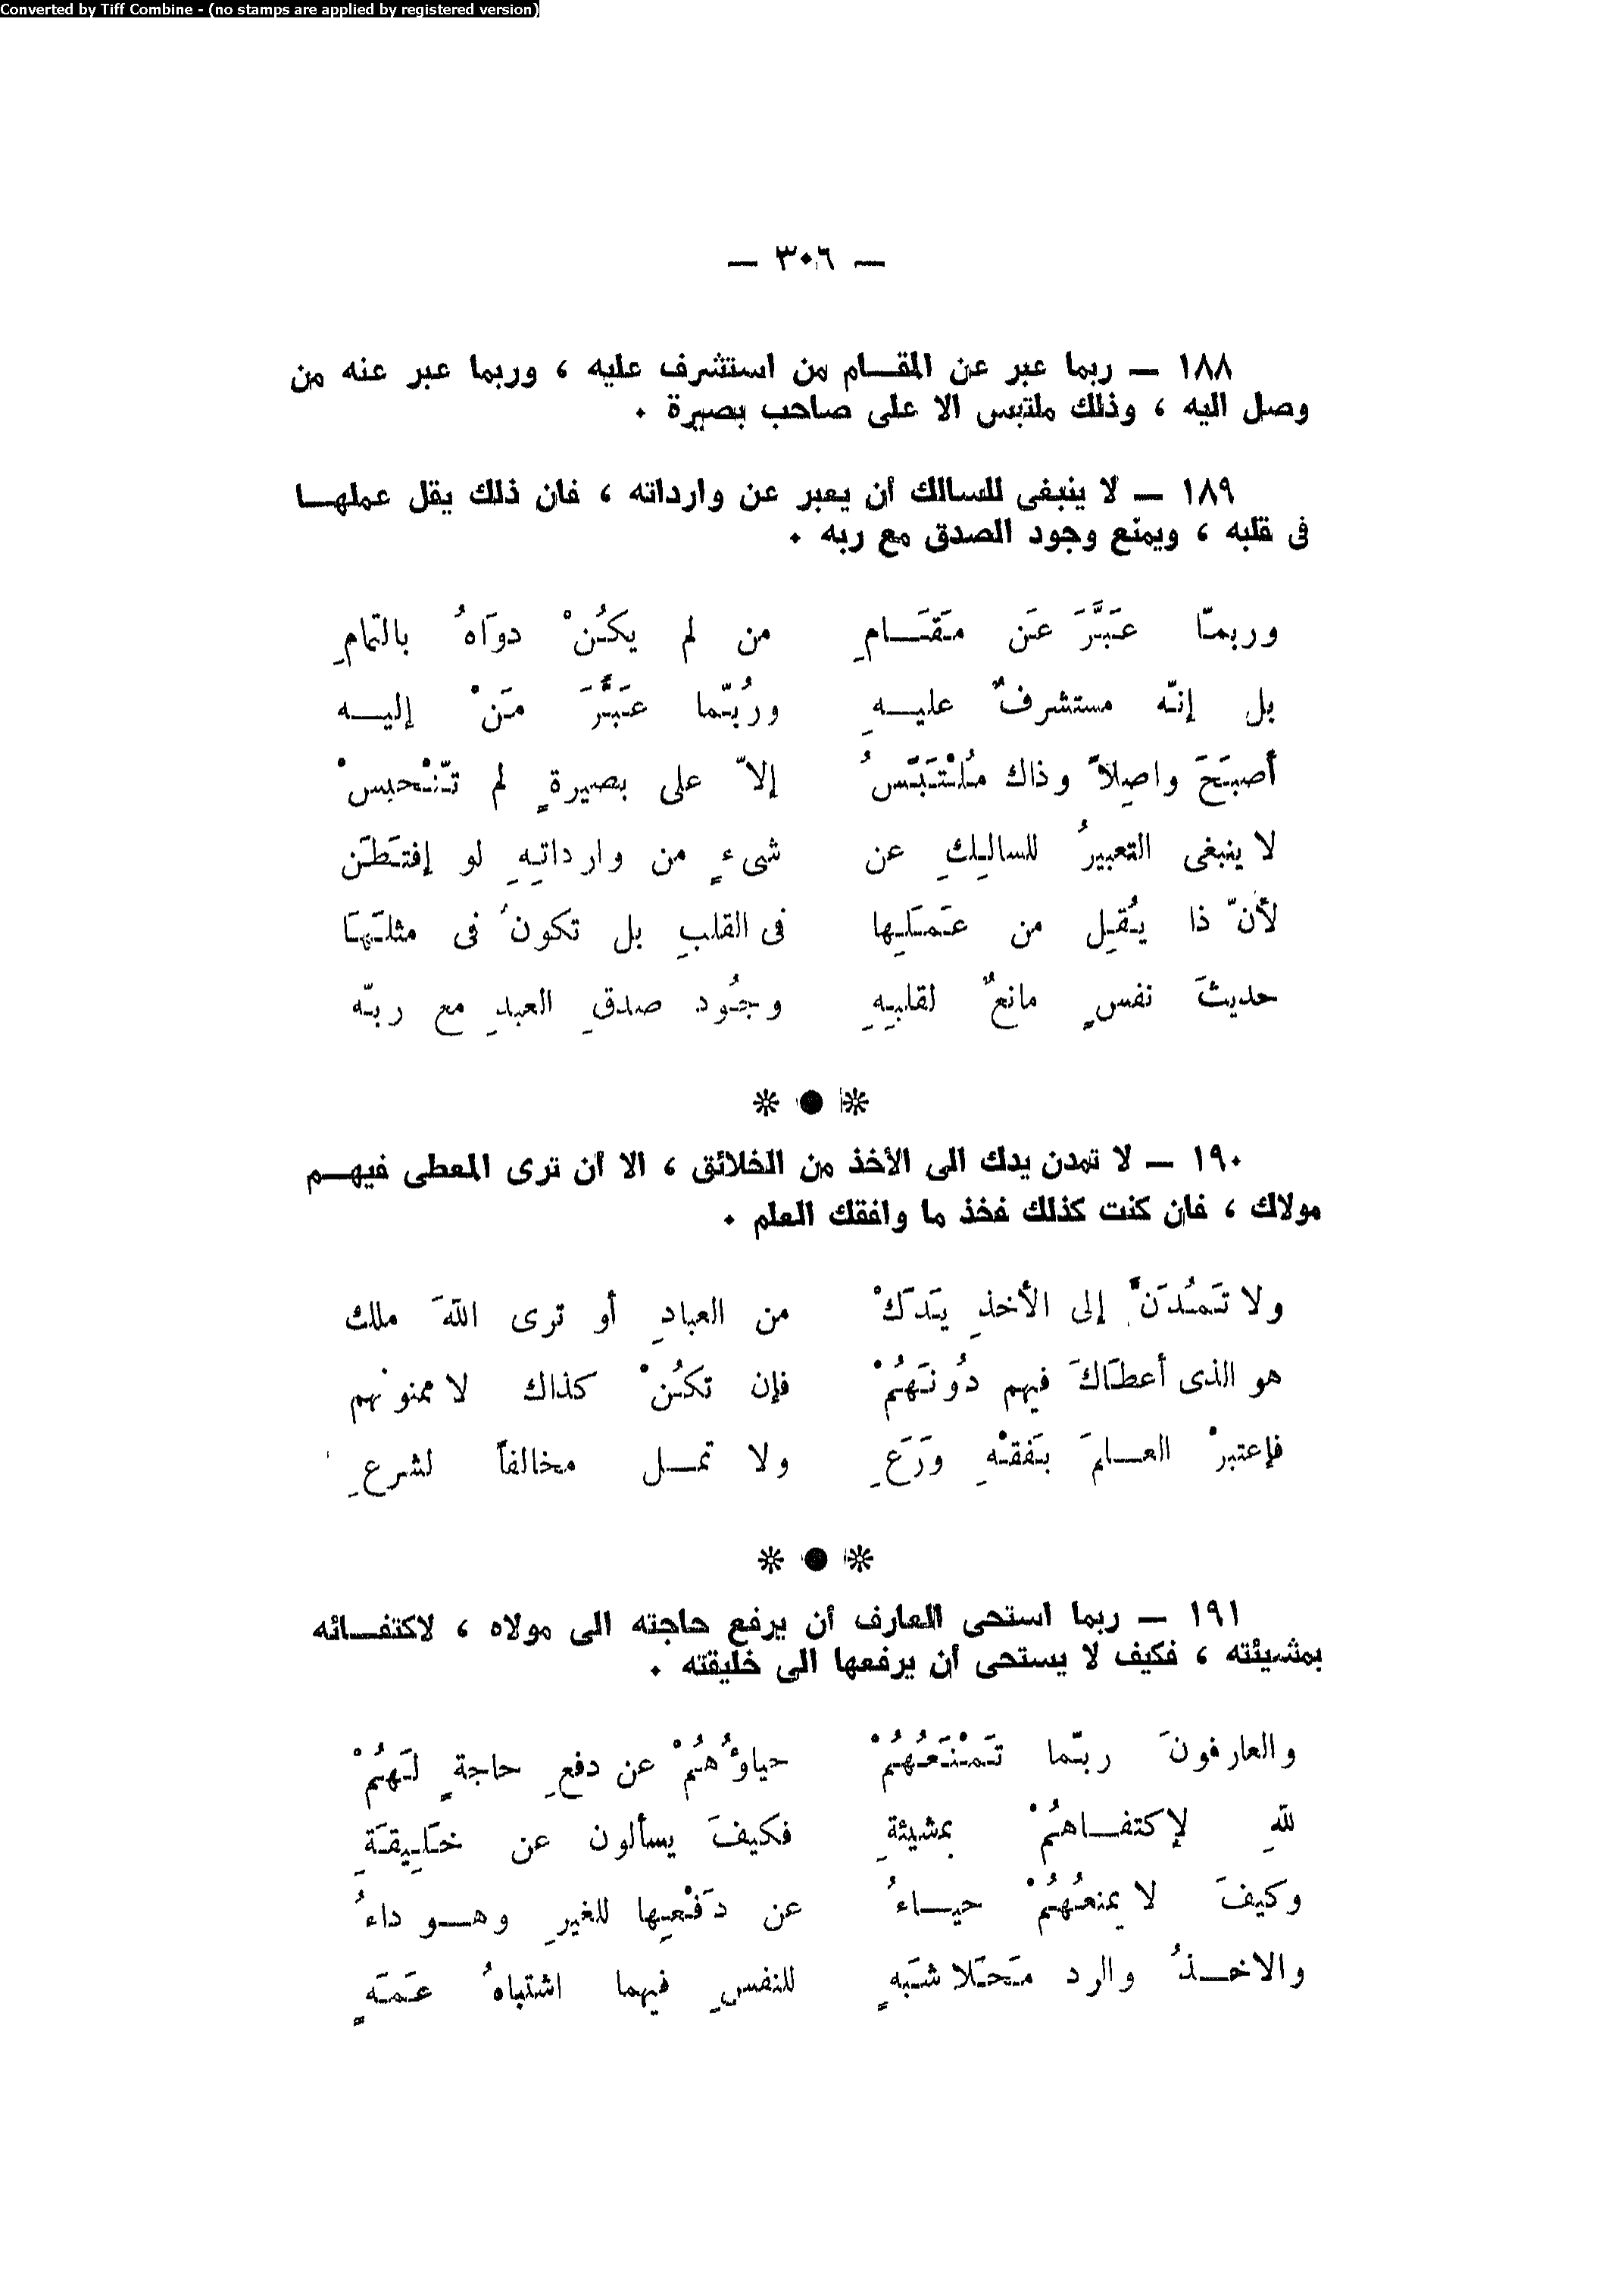 Converted by Tiff Combine - (no stamps are applied by registered version)
— ٣٠٦ —
١٨٨ — ربما عبر عن المقـــام من استشرف عليه ، وربما عبر عنه من
وصل اليه ، وذلك ملتبس الا على صاحب بصيرة .
١٨٩ — لا ينبغى للسالك أن يعبر عن وارداته ، فان ذلك يقل عملهـــا
فى قلبه ، ويمنع وجود الصدق مع ربه .
وربمّا عَبَّرَ عَن مَقَــامِ من لم يكُنْ دوَاهُ بالتمامِ
بل إنّه مستشرفٌ عليــهِ ورُبّما عَبَّرَ مَنْ إليــه
أصبَحَ واصِلاً وذاك مُلْتَبَسُ إلاّ على بصيرةٍ لم تَنْحبسْ
لا ينبغى التعبيرُ للسالِكِ عن شىءٍ من وارداتِهِ لو إفتَطَن
لأنّ ذا يُقِل من عَمَلِها فى القلبِ بل تكونُ فى مثلَهَا
حديثَ نفسٍ مانعٌ لقلبِهِ وجُود صدقِ العبدِ مع ربّه
١٩٠ — لا تمدن يدك الى الأخذ من الخلائق ، الا أن ترى المعطى فيهـــم
مولاك ، فان كنت كذلك فخذ ما وافقك العلم .
ولا تَمُدَنَّ إلى الأخذِ يَدَكْ من العبادِ أو ترى اللهَ ملك
هو الذى أعطَاكَ فيهم دُونَهُمْ فإن تكُنْ كذاك لا ممنونهم
فإعتبرْ العــلمَ بَفقْهِ وَرَعِ ولا تمــل مخالفاً لشرعِ
١٩١ — ربما استحى العارف أن يرفع حاجته الى مولاه ، لاكتفـــائه
بمشيئته ، فكيف لا يستحى أن يرفعها الى خليقته .
والعارفونَ ربّما تَمْنَعُهُمْ حياؤُهُمْ عن دفعِ حاجةٍ لَهُمْ
للهِ لإكتفــاهمُْ بمشيئةِ فكيفَ يسألون عن خَلِيقَةِ
وكيفَ لا يمنعُهُمْ حيــاءُ عن دَفْعِها للغيرِ وهــو داءُ
والاخــذُ والرد مَحَلا شَبهٍ للنفسِ فيهما اشتباهُ عَمَهٍ